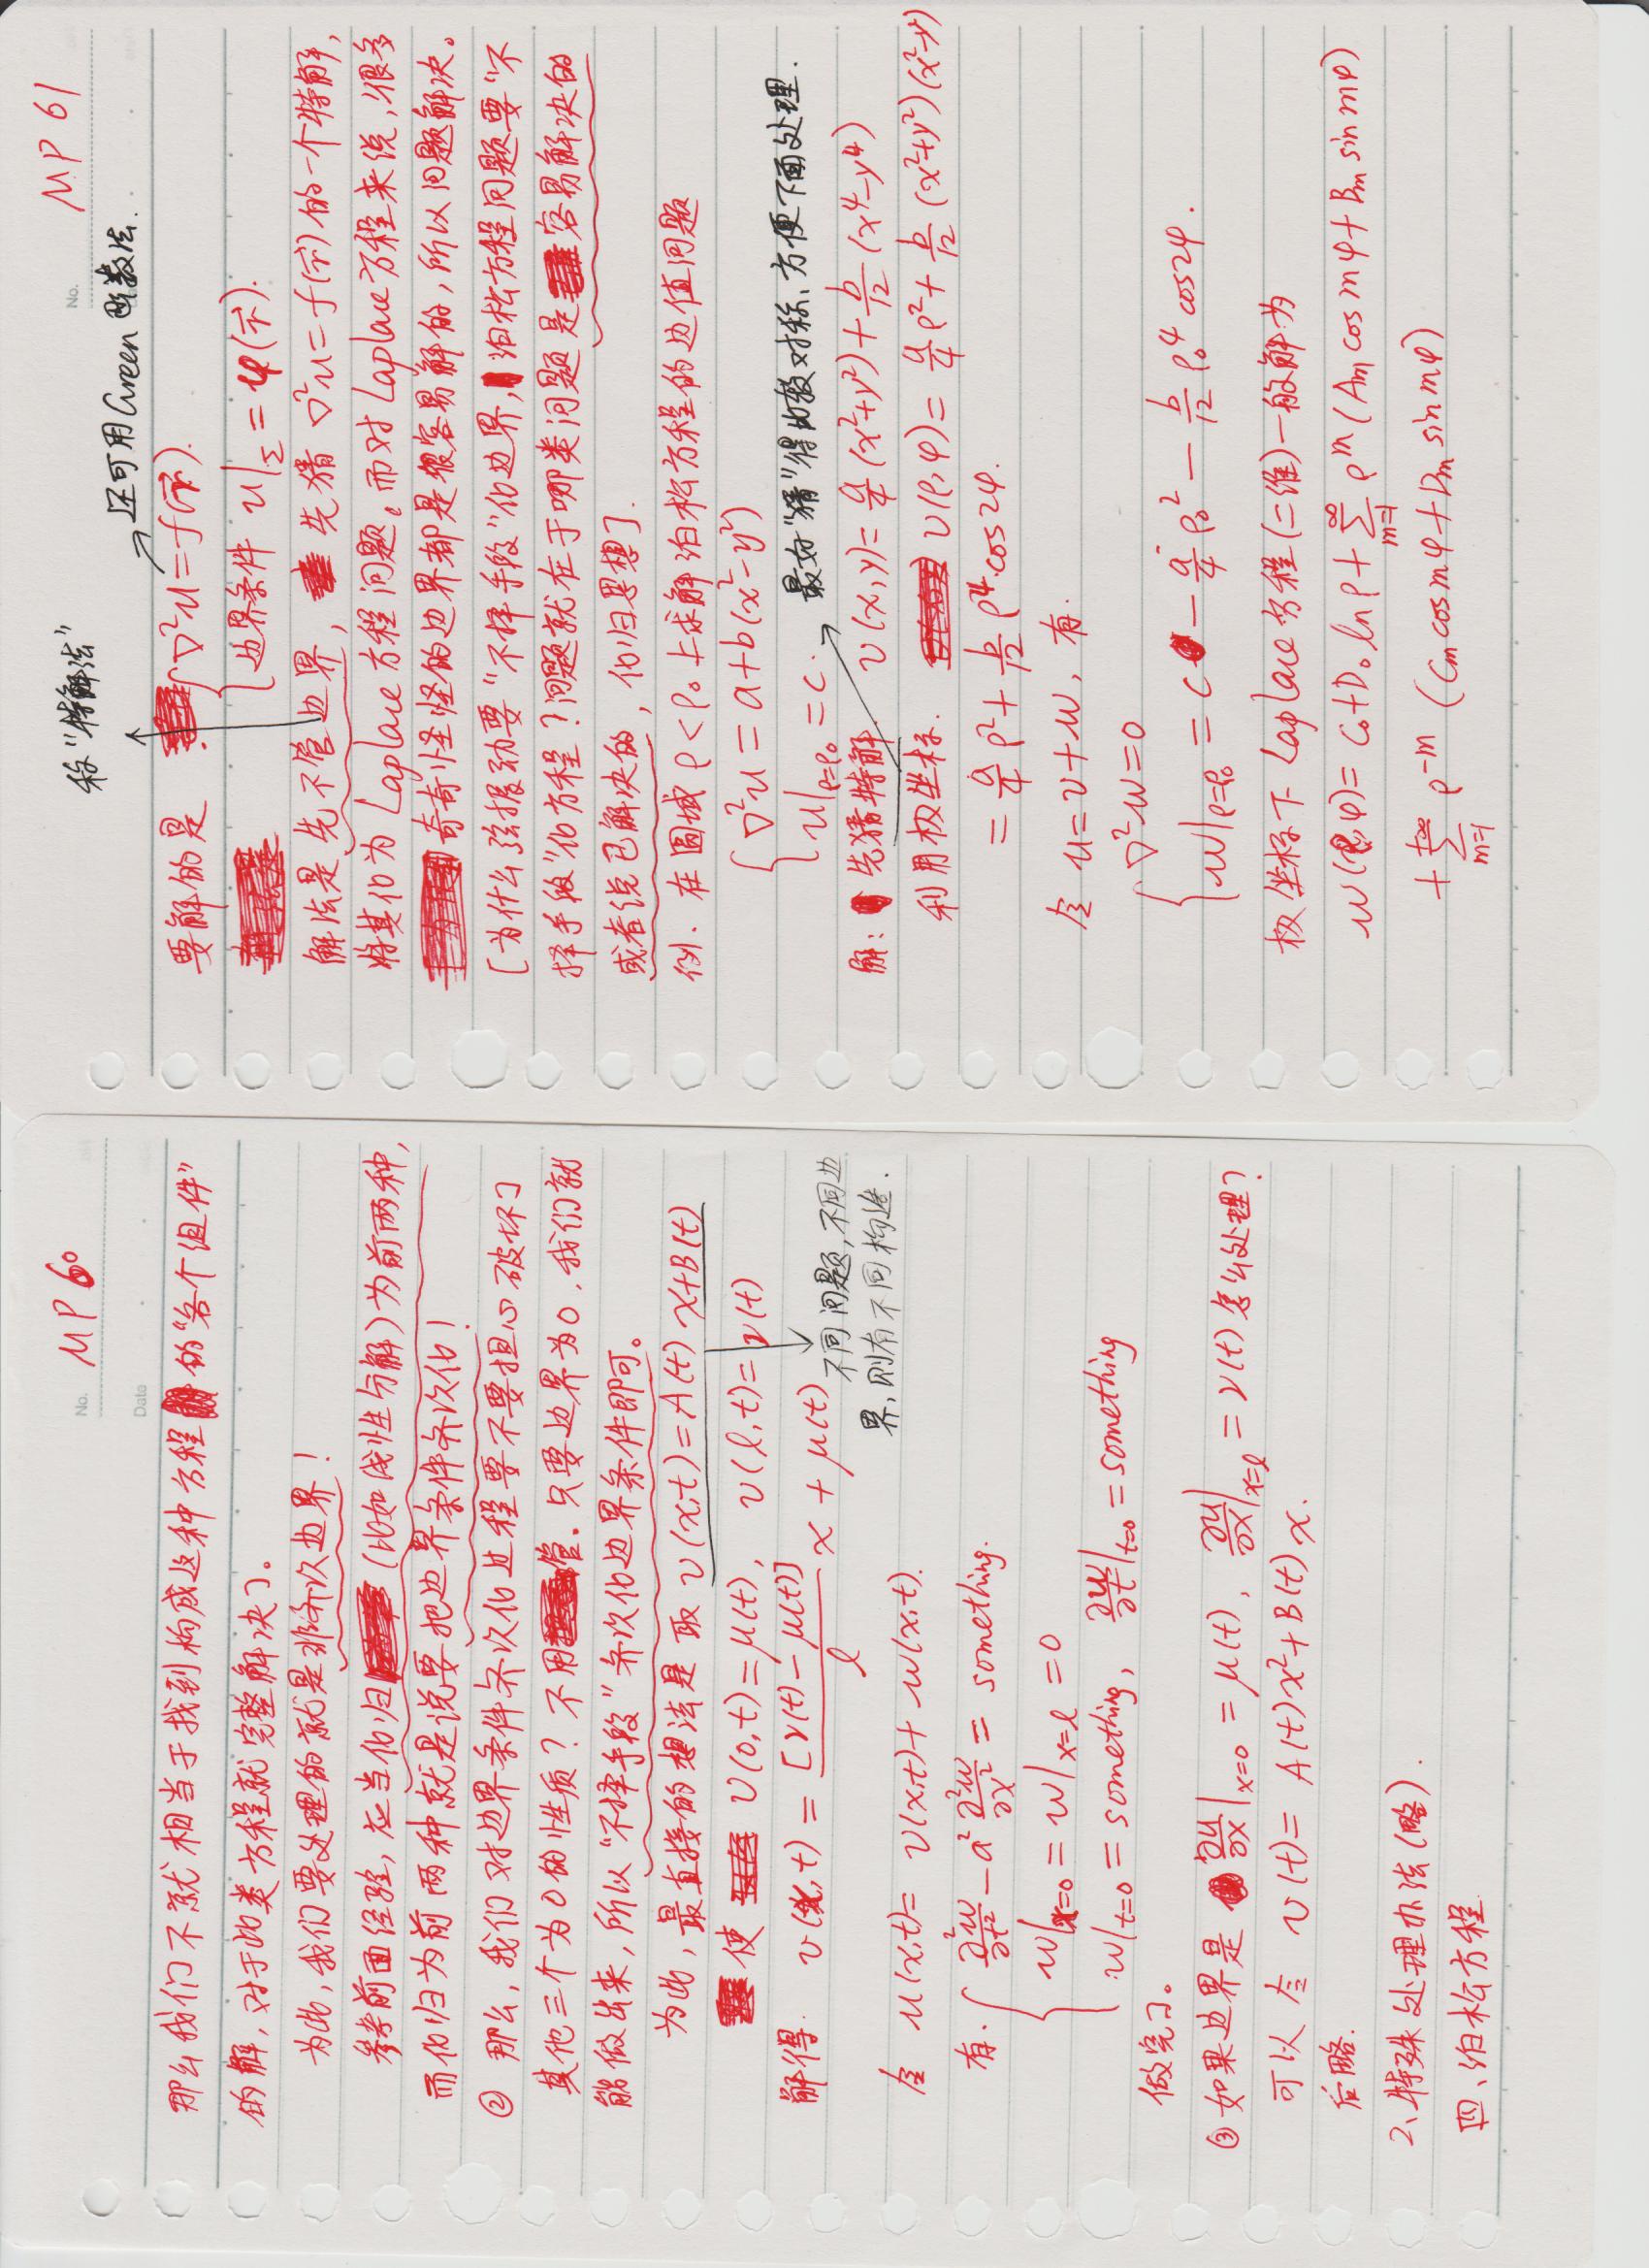 No. MP 60
Date
那么我们不就相当于找到构成这种方程的“各个组件”
的解,对于此类方程就完整解决了。
为此,我们要处理的就是非齐次边界!
参考前面经验,应当化归(比如线性分解)为前两种,
而化归为前两种就是说要把边界条件齐次化!
② 那么,我们对边界条件齐次化过程要不要担心破坏了
其他三个为0的性质?不用管.只要边界为0,我们就
能做出来,所以“不择手段”齐次化边界条件即可。
为此,最直接的想法是取 v(x,t)=A(t)x+B(t)
使 v(0,t)=μ(t), v(l,t)=ν(t)
解得. v(x,t) = [ν(t)-μ(t)]/l x + μ(t)
不同问题,不同边
界,则有不同构造.
令 u(x,t)= v(x,t)+w(x,t).
有. ∂²w/∂t² - a² ∂²w/∂x² = something.
w|x=0 = w|x=l = 0
w|t=0 = something, ∂w/∂t|t=0 = something
做完了。
③ 如果边界是 ∂u/∂x|x=0 = μ(t), ∂u/∂x|x=l = ν(t) 怎么处理?
可以令 v(t)= A(t)x²+B(t)x.
后略.
2、特殊处理办法(略).
四、泊松方程.
No. MP 61
称“特解法”
还可用Green函数法.
要解的是 ∇²u=f(r⃗).
边界条件 u|Σ = φ(r⃗).
解法是先不管边界, 先猜 ∇²u=f(r⃗)的一个特解,
将其化为Laplace方程问题。而对Laplace方程来说,很多
奇奇怪怪的边界都是很容易解的,所以问题解决。
[为什么弦振动要“不择手段”化边界,泊松方程问题要“不
择手段”化方程?问题就在于哪类问题是容易解决的
或者说已解决的,化归思想].
例. 在圆域ρ<ρ₀上求解泊松方程的边值问题
∇²u = a+b(x²-y²)
u|ρ=ρ₀ = c.
最好“猜”得比较对称、方便下面处理.
解: 先猜特解 v(x,y)= a/4 (x²+y²)+ b/12 (x⁴-y⁴)
利用极坐标. v(ρ,φ)= a/4 ρ²+ b/12 (x²+y²)(x²-y²)
= a/4 ρ²+ b/12 ρ⁴·cos2φ.
令 u=v+w, 有.
∇²w=0
w|ρ=ρ₀ = c - a/4 ρ₀² - b/12 ρ₀⁴ cos2φ.
极坐标下Laplace方程(二维)一般解为
w(ρ,φ)= C₀+D₀ lnρ+ ∑m=1^∞ ρ^m (Am cos mφ+Bm sin mφ)
+ ∑m=1^+∞ ρ^-m (Cm cos mφ+Dm sin mφ)